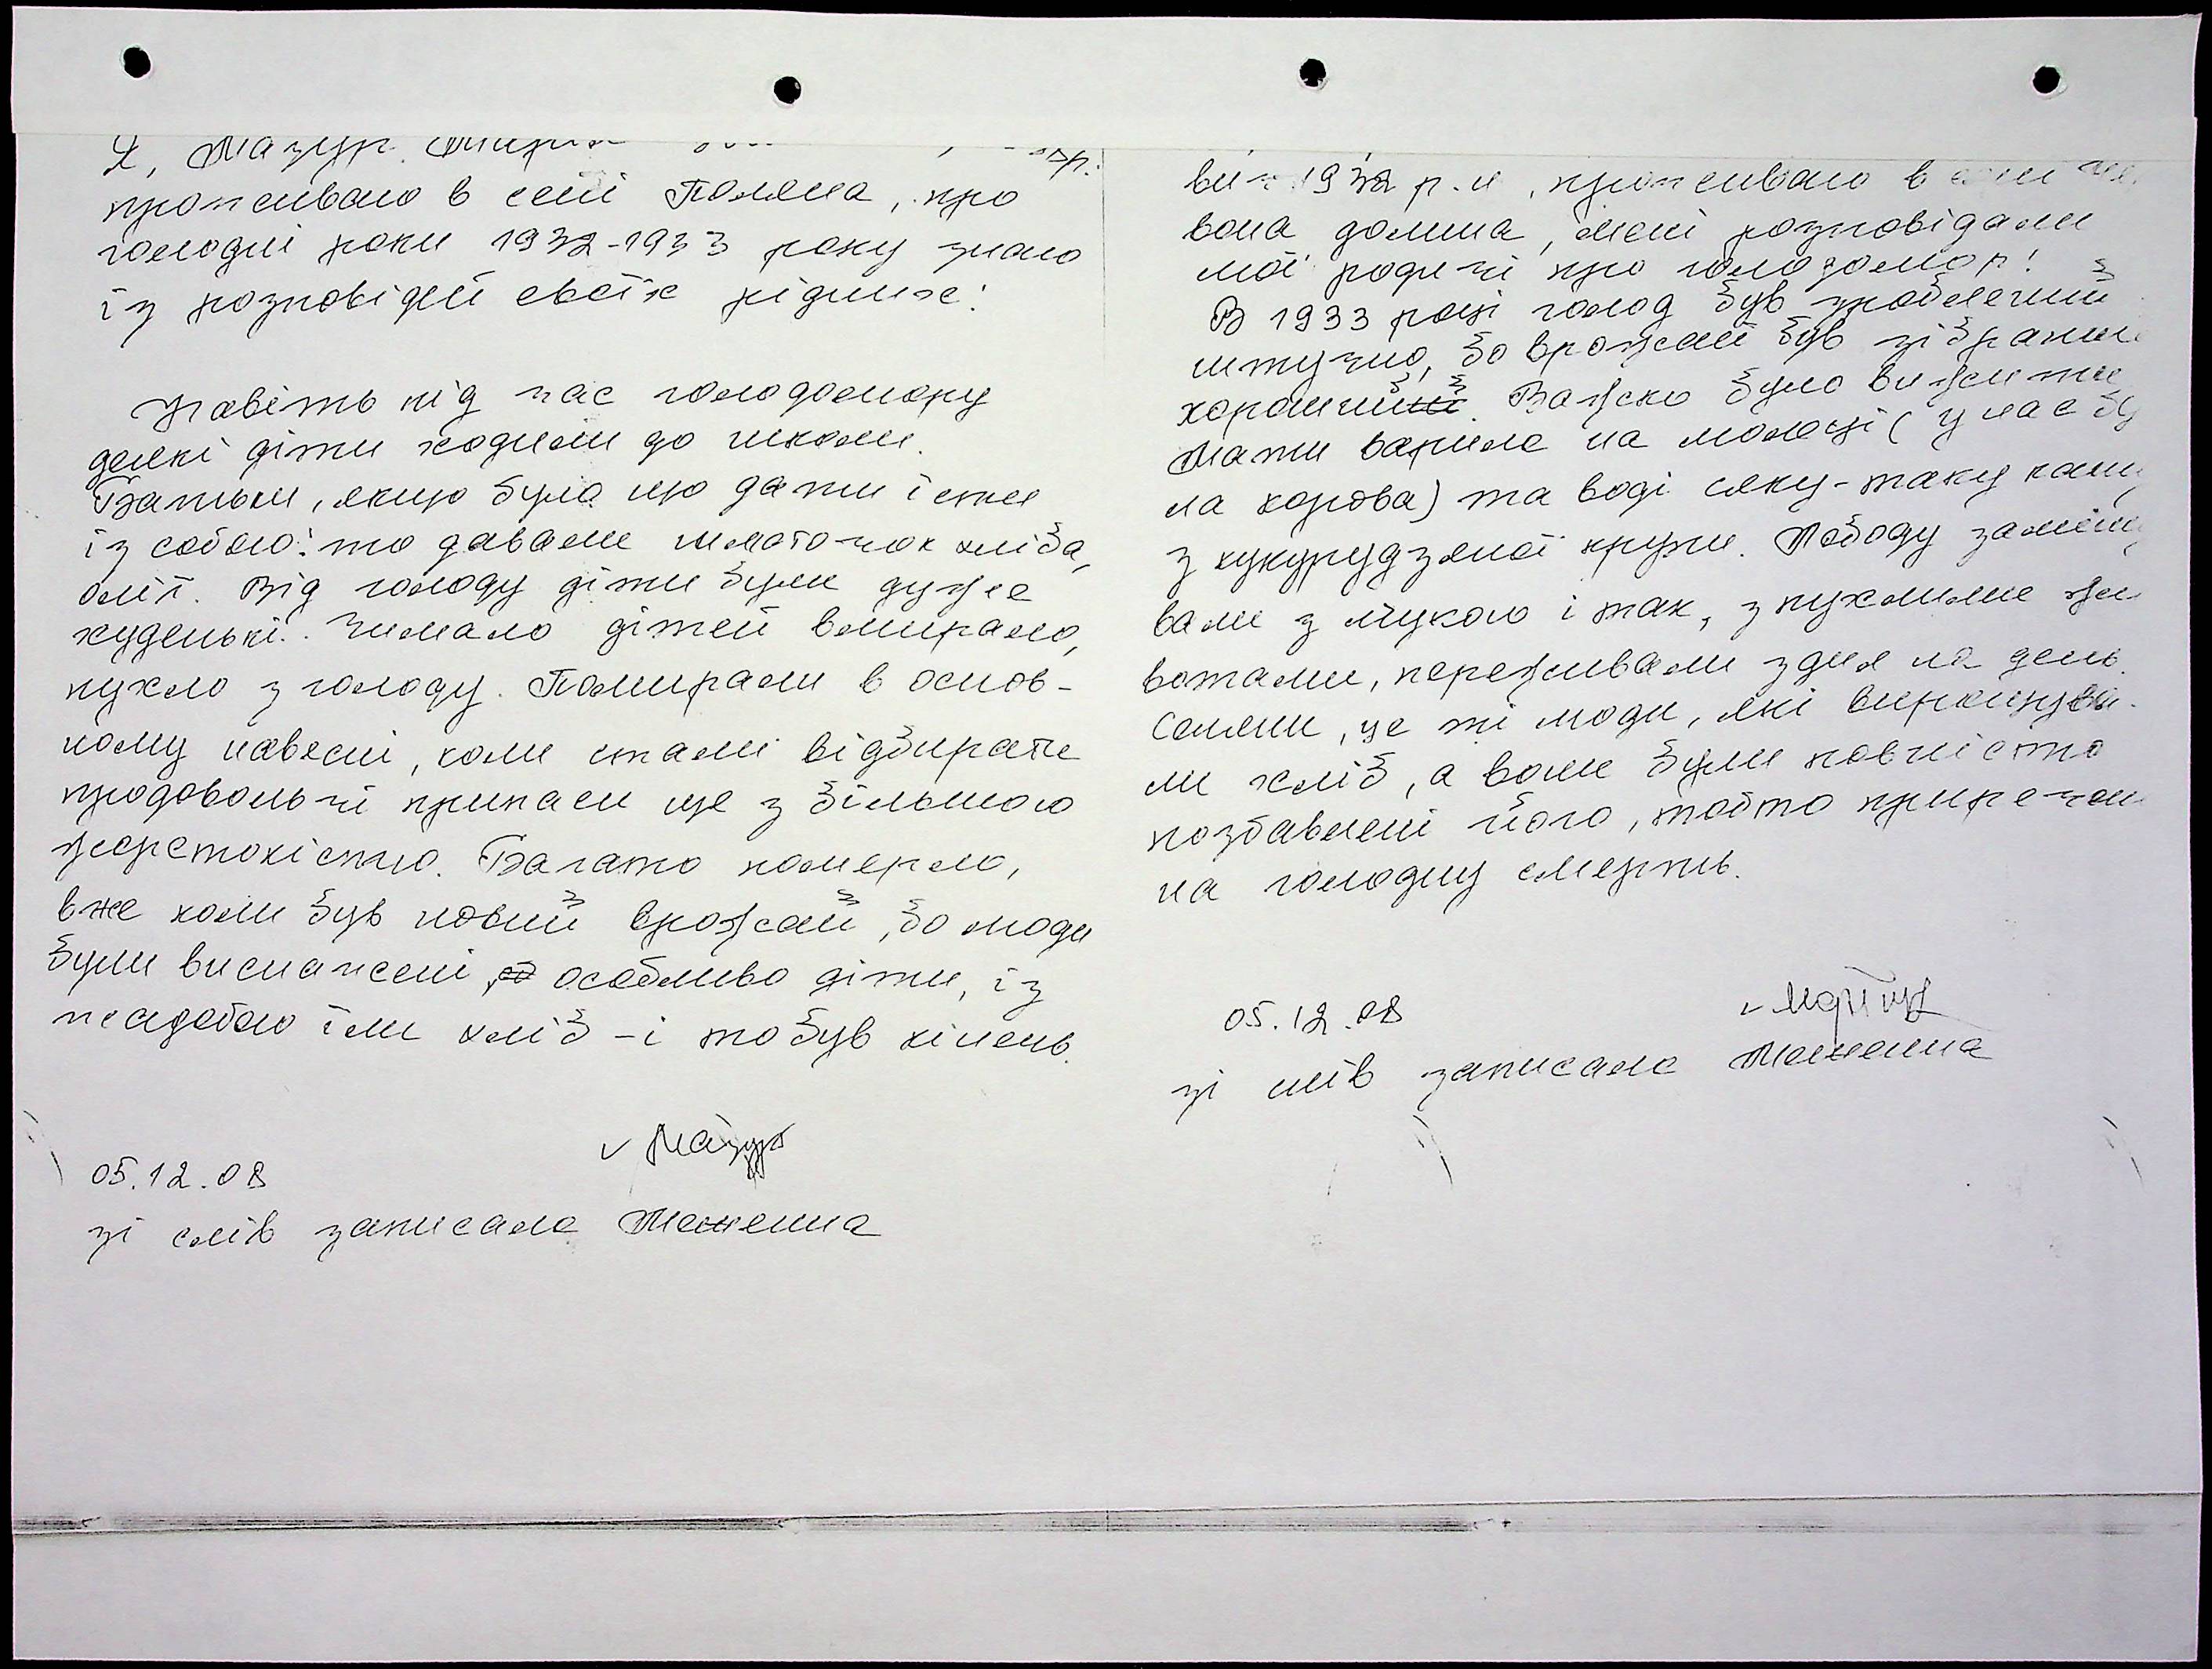 Я, Мазур
проживаю в селі Поляна, про
голодні роки 1932-1933 року знаю
із розповідей своїх рідних:
Навіть під час голодомору
деякі діти ходили до школи.
Батьки, якщо було що дати їсти
із собою: то давали шматочок хліба,
олії. Від голоду діти були дуже
худенькі. Чимало дітей вмирало,
пухло з голоду. Помирали в основ-
ному навесні, коли стали відбирати
продовольчі припаси ще з більшою
жорстокістю. Багато померло,
вже коли був новий врожай, бо люди
були виснажені, особливо діти, із
жадобою їли хліб – і то був кінець.
Мазур
05.12.08
зі слів записала
1932 р.н, проживаю в
вона долина, мені розповідали
мої родичі про голодомор:
В 1933 році голод був зроблений
штучно, бо врожай був зібрани
хороший. Важко було вижити
Мати варила на молоці ( у нас бу
ла корова) та воді сяку-таку каш
з кукурудзяної крупи. Лободу заміш
вали з мукою і так, з пухлими жи
вотами, переживали з дня на день.
Селяни, це ті люди, які вирощува-
ли хліб, а вони були повністю
позбавлені його, тобто приречен
на голодну смерть.
05.12.08
зі слів записала